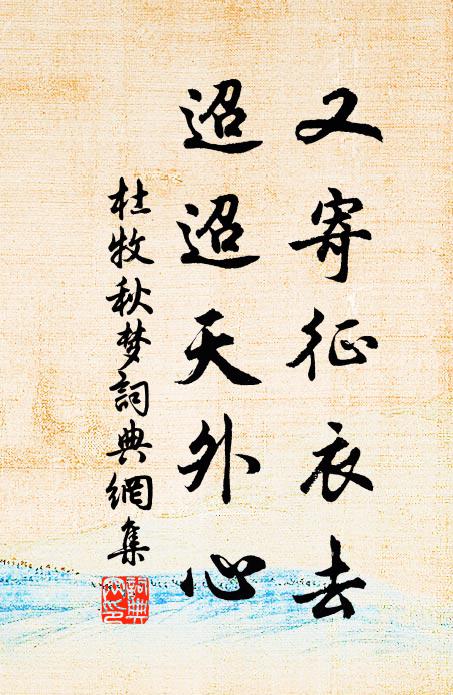 又寄征衣去
迢迢天外心
杜牧秋梦詞典網集